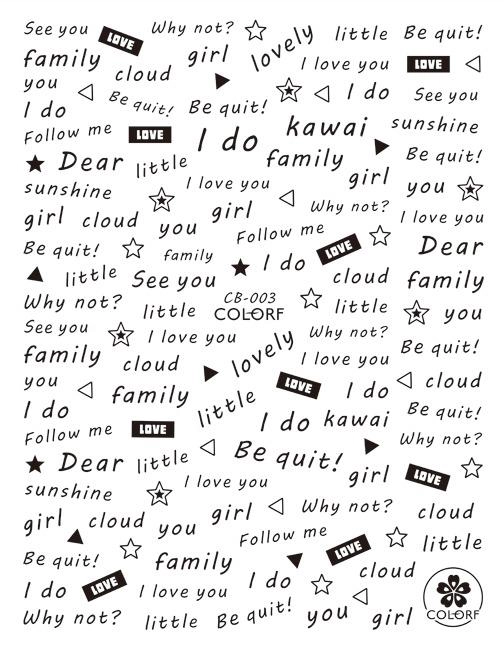 See you LOVE Why not? lovely little Be quit!
family cloud girl I love you LOVE
you Be quit! Be quit! I do See you
I do
Follow me LOVE I do kawai sunshine
Dear little family Be quit!
sunshine I love you girl you
girl cloud you girl Why not? I love you
Be quit! family Follow me LOVE Dear
little See you I do cloud family
Why not? little CB-003 little you
COLORF
See you I love you lovely Why not? Be quit!
family cloud I love you
you family LOVE I do cloud
I do little I do kawai Be quit!
Follow me LOVE Be quit! Why not?
Dear little girl LOVE
sunshine I love you
girl cloud you girl Why not? cloud
Be quit! family Follow me LOVE little
I do LOVE I love you I do cloud
Why not? little Be quit! you girl COLORF